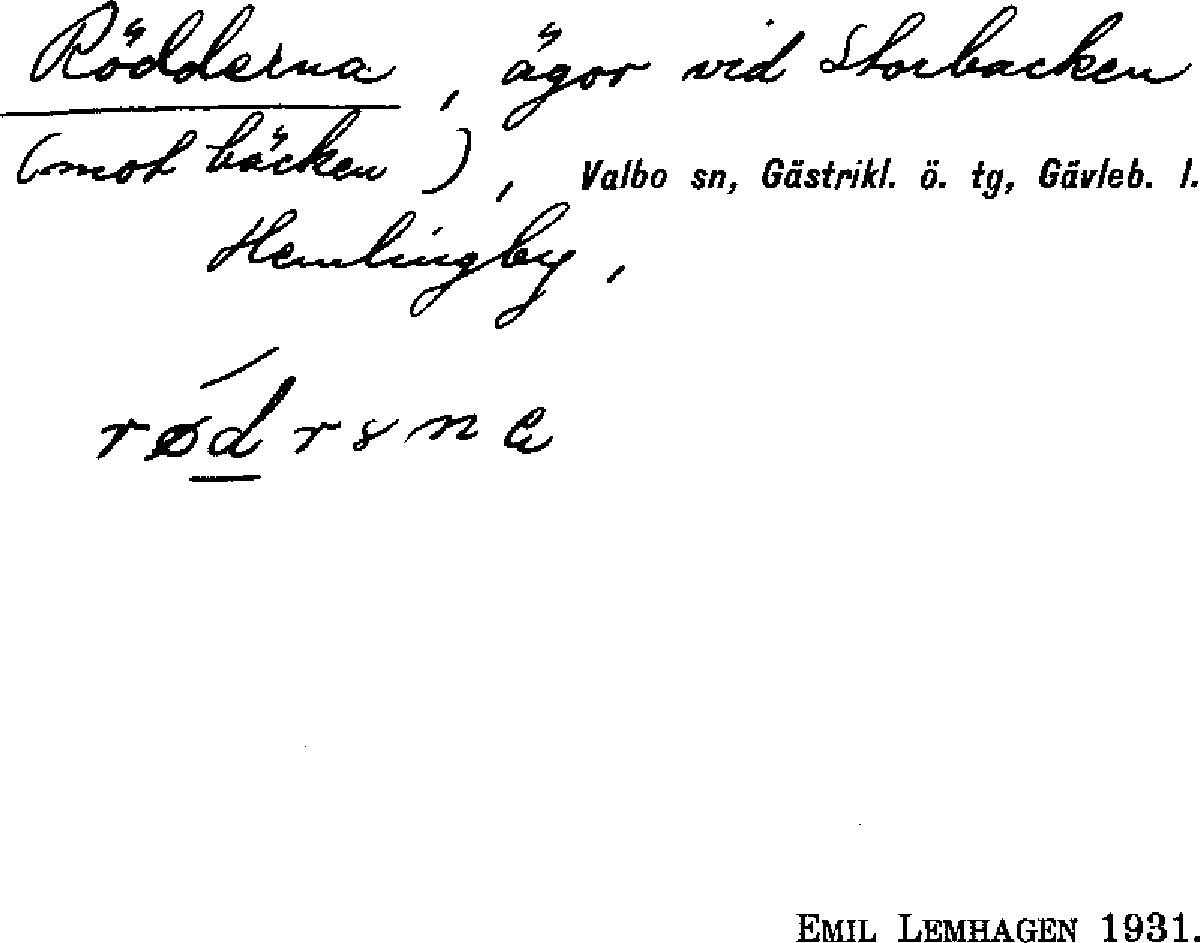 Rödderna, ägor vid Storbacken
(mot bäcken), Valbo sn, Gästrikl. ö. tg, Gävleb. l.
Hemlingby,
EMIL LEMHAGEN 1931.